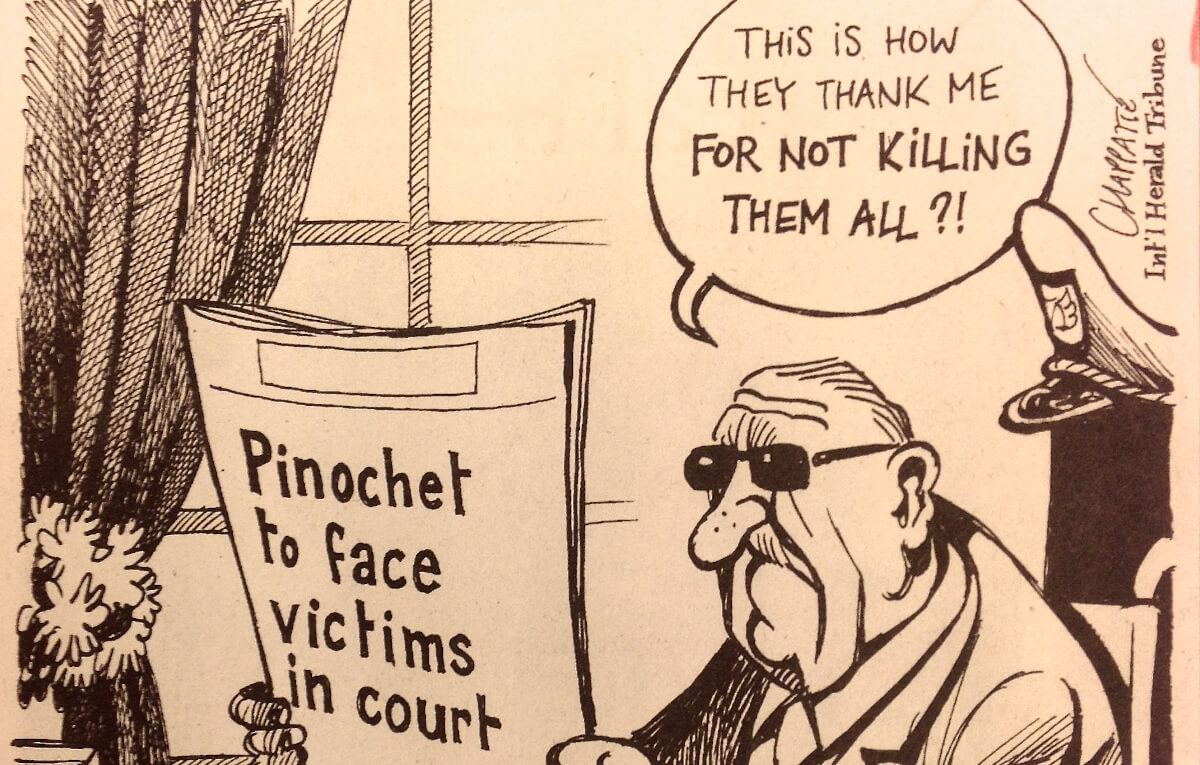 THiS iS HOW
THEY THANK ME
FOR NOT KiLLiNG
THEM ALL?!
CHAPPATTE
Int'l Herald Tribune
Pinochet
to face
victims
in court